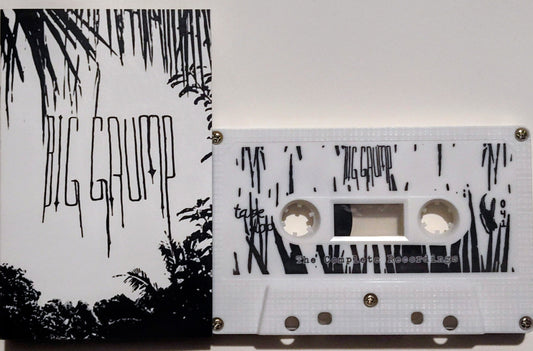 BIG GRUMP
BIG GRUMP
tape
The Complete Recordings